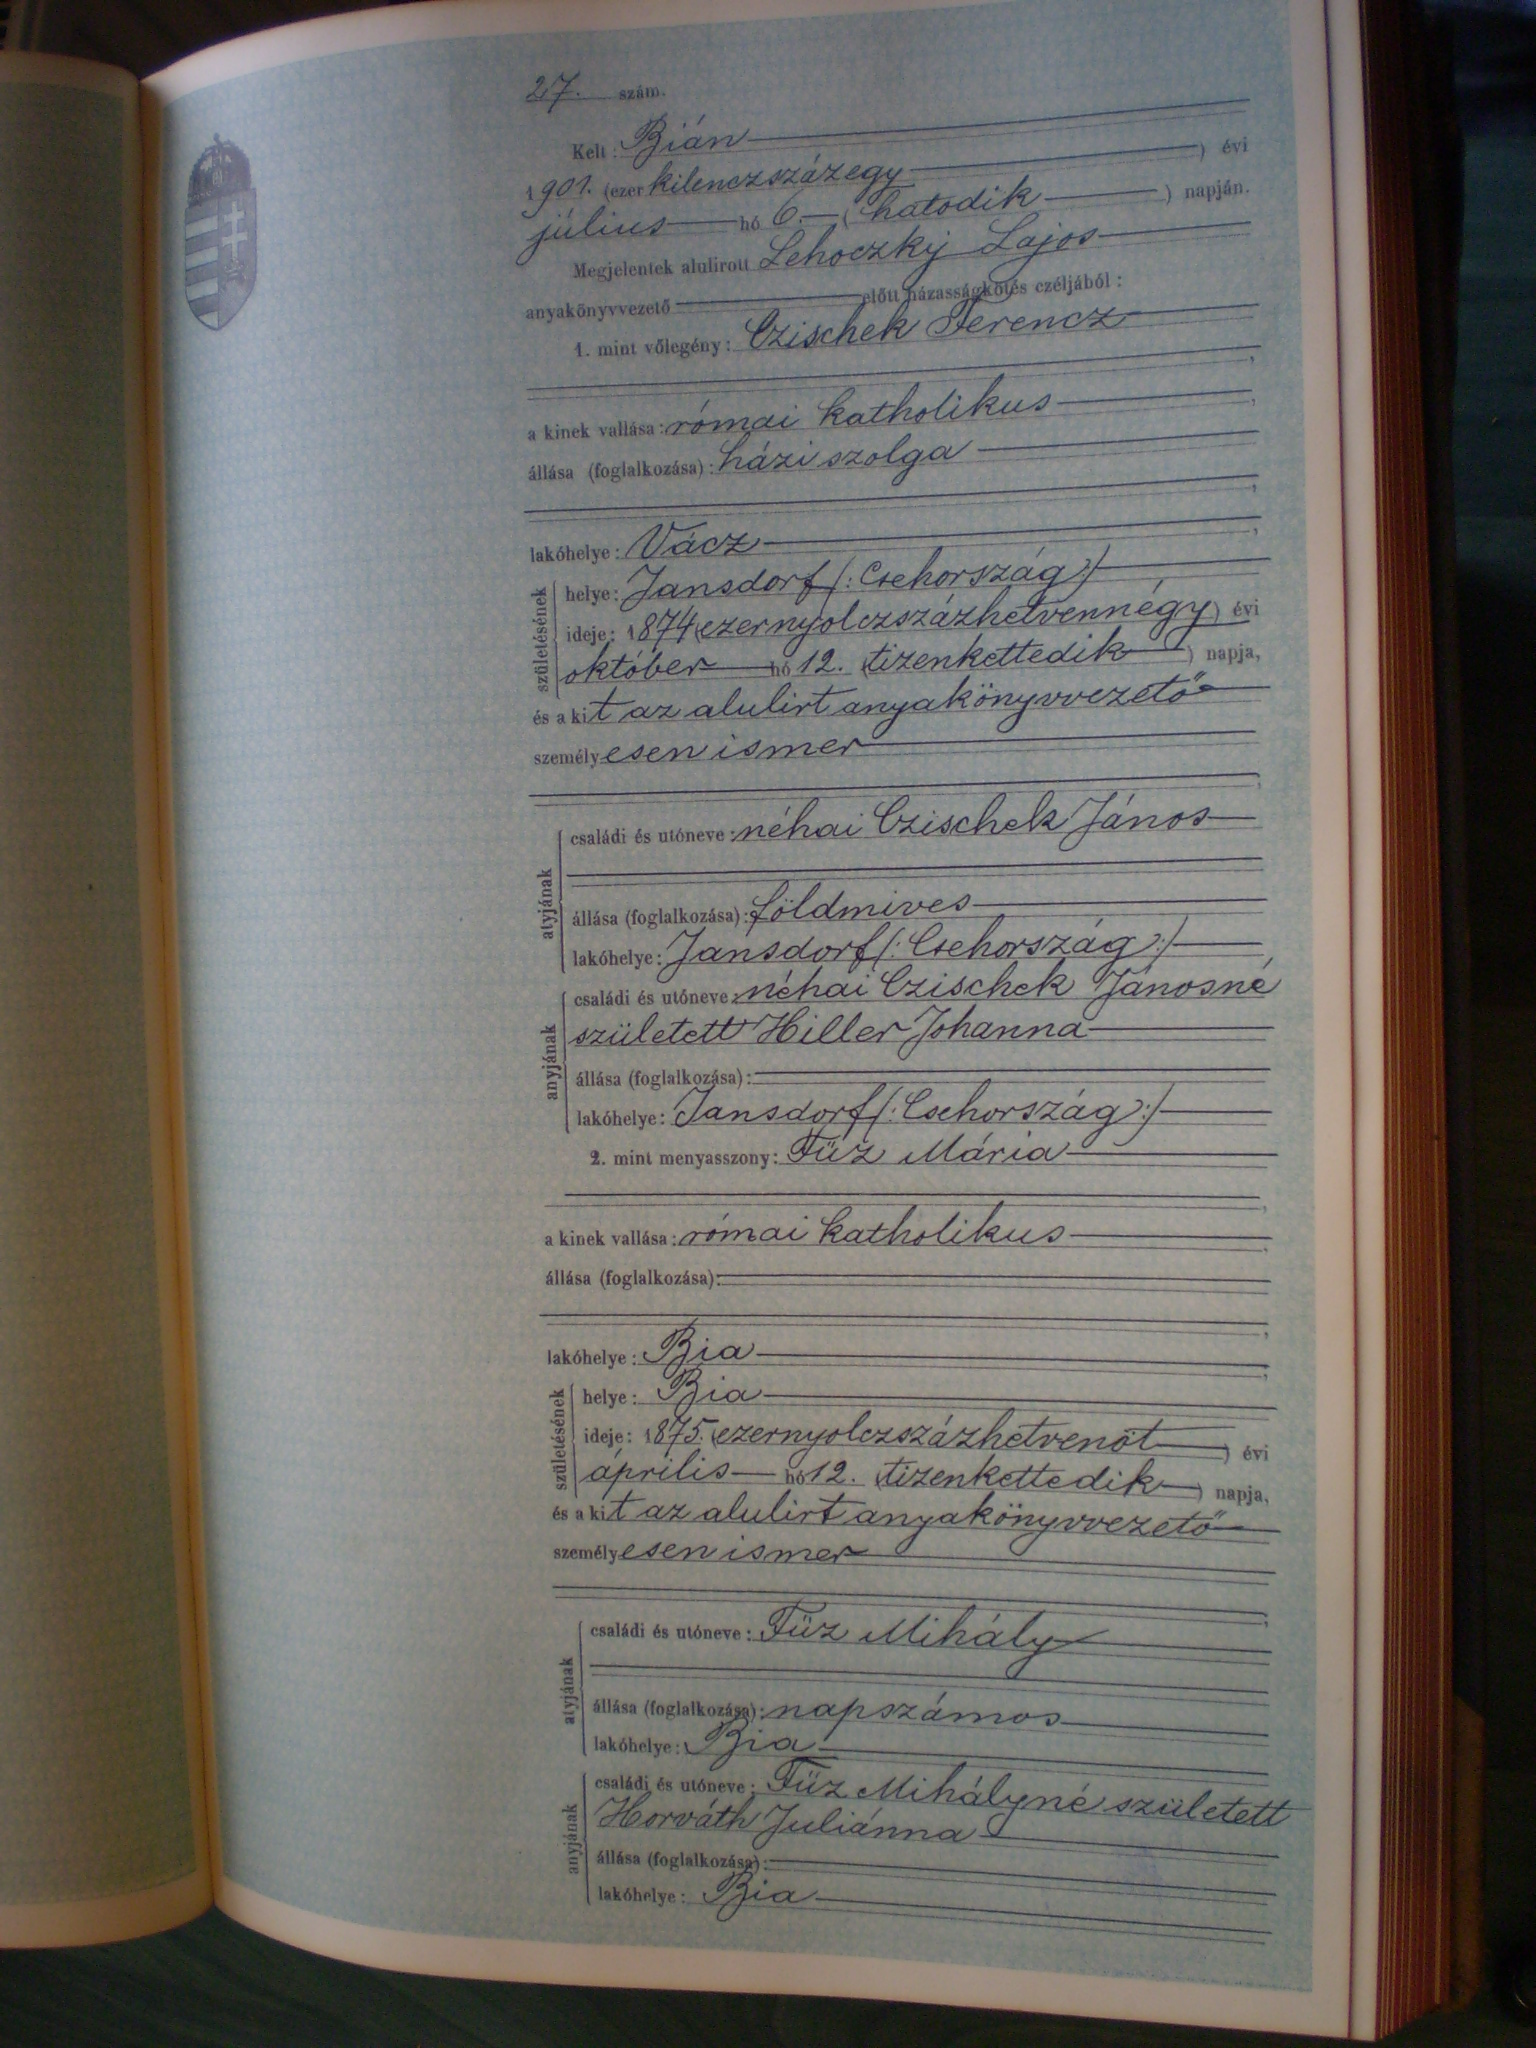 27. szám.
Kelt: Bián
1901. (ezer kilenczszázegy) évi
július hó 6. (hatodik) napján.
Megjelentek alulirott Lehoczky Lajos
anyakönyvvezető előtt házasságkötés czéljából:
1. mint vőlegény: Czischek Ferencz
a kinek vallása: római katholikus
állása (foglalkozása): házi szolga
lakóhelye: Vácz
születésének
helye: Jansdorf (: Csehország :)
ideje: 1874 (ezernyolczszázhetvennégy) évi
október hó 12. (tizenkettedik) napja,
és a kit az alulirt anyakönyvvezető
személyesen ismer
atyjának
családi és utóneve: néhai Czischek János
állása (foglalkozása): földmives
lakóhelye: Jansdorf (: Csehország :)
anyjának
családi és utóneve: néhai Czischek Jánosné
született Hiller Johanna
állása (foglalkozása):
lakóhelye: Jansdorf (: Csehország :)
2. mint menyasszony: Füz Mária
a kinek vallása: római katholikus
állása (foglalkozása):
lakóhelye: Bia
születésének
helye: Bia
ideje: 1875. (ezernyolczszázhetvenöt) évi
április hó 12. (tizenkettedik) napja,
és a kit az alulirt anyakönyvvezető
személyesen ismer
atyjának
családi és utóneve: Füz Mihály
állása (foglalkozása): napszámos
lakóhelye: Bia
anyjának
családi és utóneve: Füz Mihályné született
Horváth Juliánna
állása (foglalkozása):
lakóhelye: Bia